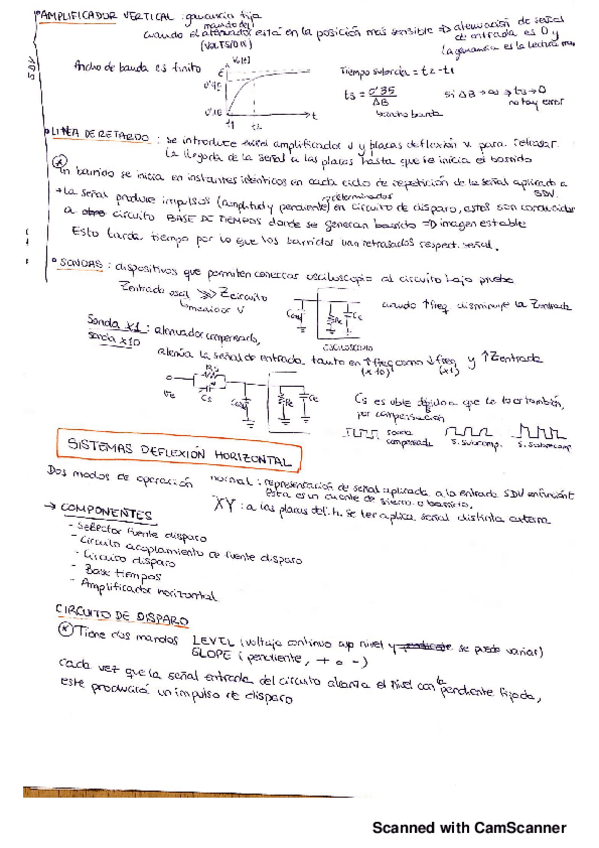 AMPLIFICADOR VERTICAL: ganancia fija
cuando el mando del atenuador está en la posición más sensible ⇒ atenuación de señal
(VOLTS/DIV)
de entrada es 0 y
(la ganancia es la lectura
SDV
Ancho de banda es finito
V₀(t)
E
0'9E
0'1E
t1 t2
t
Tiempo subida = t2-t1
ts = 0'35/ΔB
ancho banda
si ΔB → ∞ ⇒ ts → 0
no hay error
LINEA DE RETARDO: se introduce entre amplificador V y placas deflexión v. para retrasar
la llegada de la señal a las placas hasta que se inicia el barrido
(*)
Un barrido se inicia en instantes idénticos en cada ciclo de repetición de la señal aplicada a
SDV.
→ La señal produce impulsos (amplitud y pendiente) en circuito de disparo, estos son conducidos
predeterminados
a otro circuito BASE DE TIEMPOS donde se generan barrido ⇒ imagen estable
Esto tarda tiempo por lo que los barridos van retrasados respect. señal.
SONDAS: dispositivos que permiten conectar osciloscopio al circuito bajo prueba
Zentrada oscil >> Zcircuito
medidor V
Ccoax
Re
Ce
OSCILOSCOPIO
cuando ↑freq disminuye la Zentrada
Sonda x1: atenuador compensado,
sonda x10
atenúa la señal de entrada tanto en ↑freq como ↓freq y ↑Zentrada
(x10) (x1)
Rs
Cs
Ve
Ccoax
Re
Ce
Cs es
por compensación
sonda compensada
s. subcomp.
SISTEMAS DEFLEXIÓN HORIZONTAL
Dos modos de operación
normal: representación de señal aplicada a la entrada SDV en función t
esta es un diente de sierra o barrido.
XY: a las placas def. h. se le aplica señal distinta externa
→ COMPONENTES
- Selector fuente disparo
- Circuito acoplamiento de fuente disparo
- Circuito disparo
- Base tiempos
- Amplificador horizontal
CIRCUITO DE DISPARO
(*) Tiene dos mandos LEVEL (voltaje continuo cuyo nivel se puede variar)
SLOPE (pendiente, + o -)
cada vez que la señal entrada del circuito alcanza el nivel con la pendiente fijada,
este producirá un impulso de disparo
Scanned with CamScanner